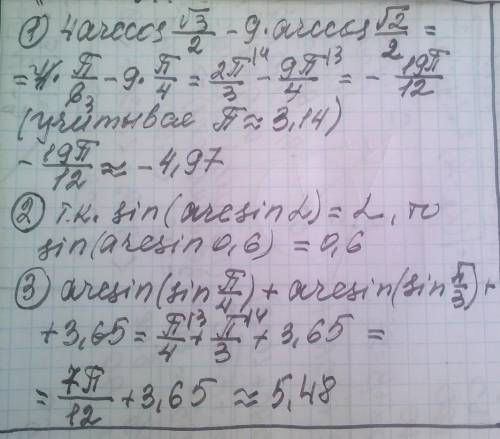 ① 4 arccos √3/2 - 9·arccos √2/2 =
= 4·π/6 3 - 9·π/4 = 2π/3 14 - 9π/4 13 = - 19π/12
(учитывая π ≈ 3,14)
- 19π/12 ≈ -4,97
② т.к. sin(arcsin α) = α, то
sin(arcsin 0,6) = 0,6
③ arcsin(sin π/4) + arcsin(sin π/3) +
+ 3,65 = π/4 13 + π/3 14 + 3,65 =
= 7π/12 + 3,65 ≈ 5,48